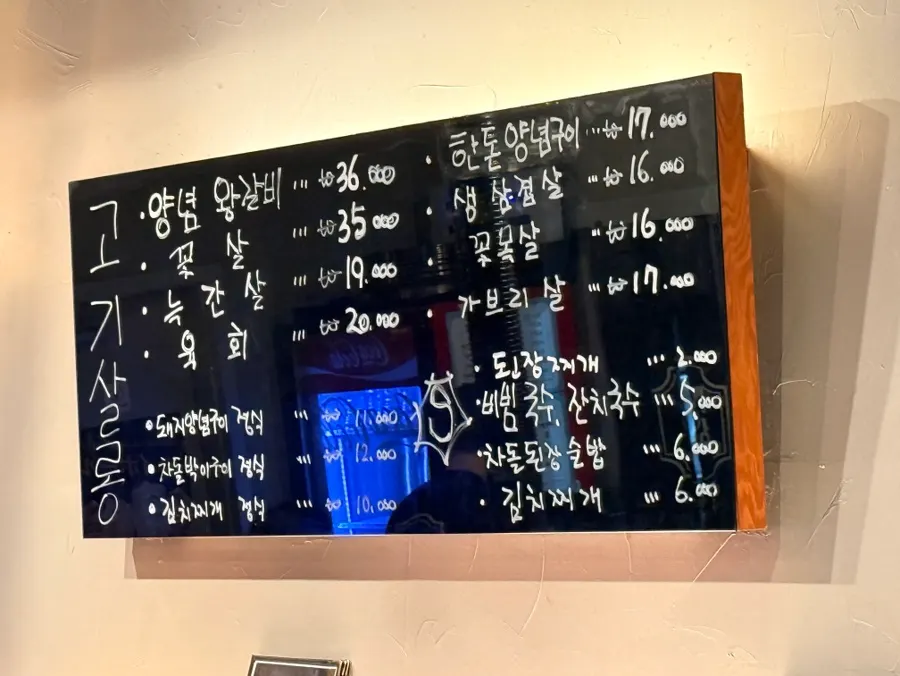 고기살롱
· 양념 왕갈비 ... ₩36.000
· 꽃 살 ... ₩35.000
· 늑 간 살 ... ₩19.000
· 육 회 ... ₩20.000
• 돼지양념구이 정식 ... ₩11.000
• 차돌박이구이 정식 ... ₩12.000
• 김치찌개 정식 ... ₩10.000
· 한돈양념구이 ... ₩17.000
· 생 삼겹살 ... ₩16.000
· 꽃목살 ... ₩16.000
· 가브리 살 ... ₩17.000
S
· 된장찌개 ... 2.000
· 비빔국수, 잔치국수 ... 5.000
· 차돌된장술밥 ... 6.000
· 김치찌개 ... 6.000
Coca-Cola